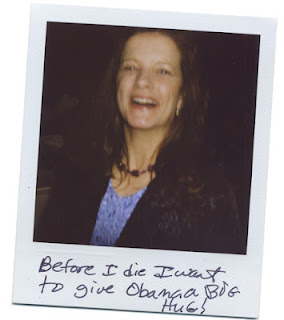 Before I die I want
to give Obama a BIG
HUG!